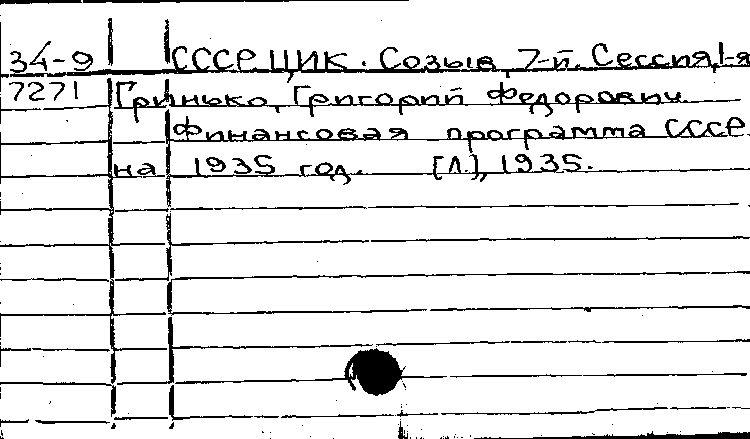 34-9 СССР. ЦИК. Созыв, 7-й. Сессия, 1-я
7271 Гринько, Григорий Федорович.
Финансовая программа СССР
на 1935 год. [Л.], 1935.